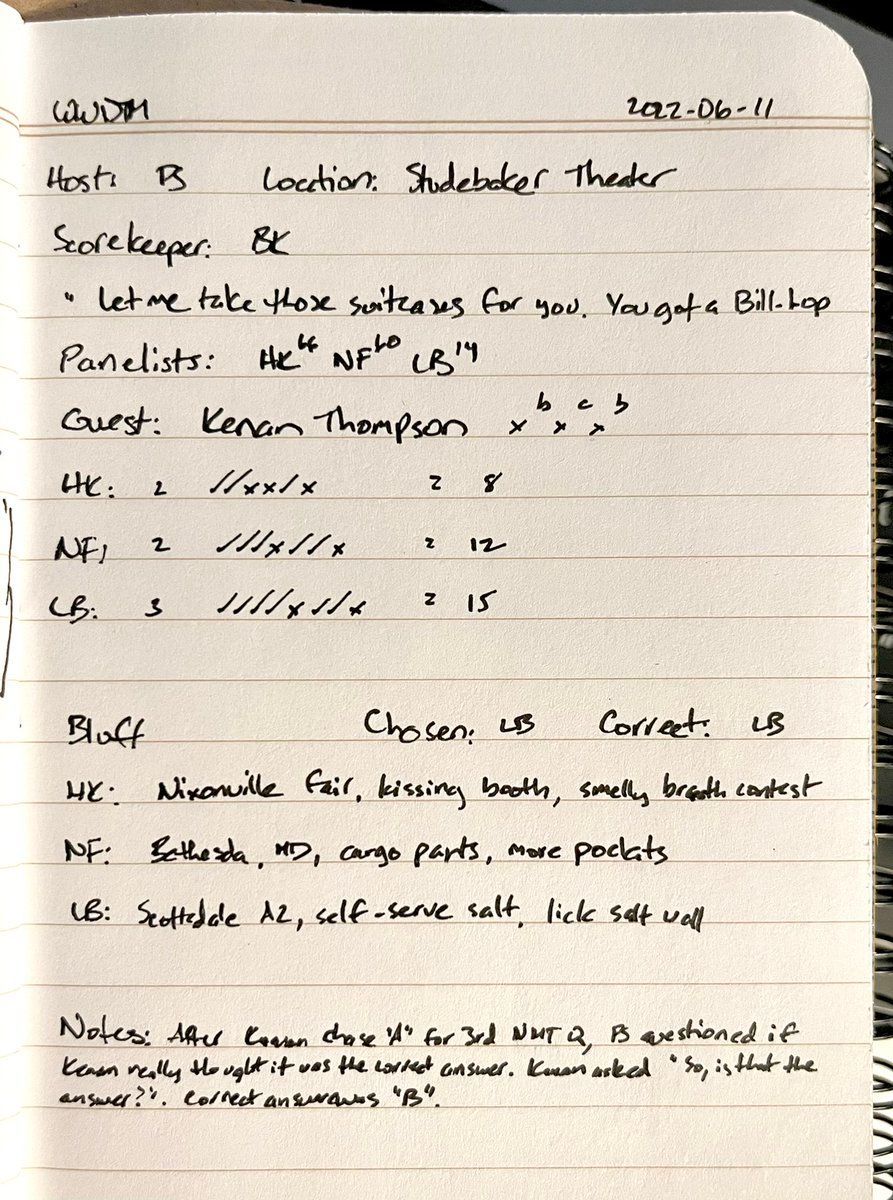 WWDTM 2022-06-11
Host: PS Location: Studebaker Theater
Scorekeeper: BK
" Let me take those suitcases for you. You got a Bill-hop
Panelists: HK NF LB
Guest: Kenan Thompson x x x b c b
HK: 2 //xx/x = 8
NF: 2 ///x//x = 12
LB: 3 ////x//x = 15
Bluff Chosen: LB Correct: LB
HK: Nixonville Fair, kissing booth, smelly breath contest
NF: Bethesda, MD, cargo pants, more pockets
LB: Scottsdale AZ, self-serve salt, lick salt wall
Notes: After Kenan chose "A" for 3rd NMJ Q, PS questioned if
Kenan really thought it was the correct answer. Kenan asked "So, is that the
answer?". Correct answer was "B".